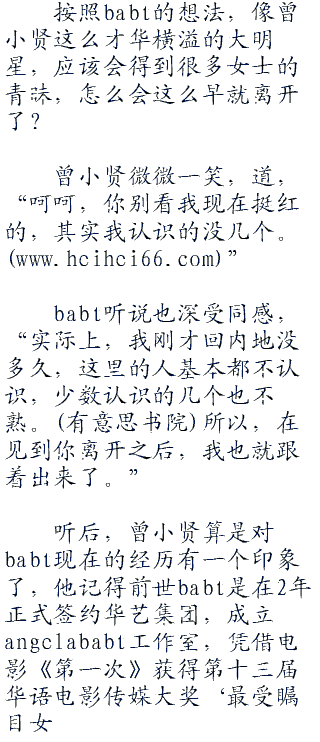 按照babt的想法，像曾
小贤这么才华横溢的大明
星，应该会得到很多女士的
青睐，怎么会这么早就离开
了？
曾小贤微微一笑，道，
“呵呵，你别看我现在挺红
的，其实我认识的没几个。
(www.hcihci66.com)”
babt听说也深受同感，
“实际上，我刚才回内地没
多久，这里的人基本都不认
识，少数认识的几个也不
熟。(有意思书院)所以，在
见到你离开之后，我也就跟
着出来了。”
听后，曾小贤算是对
babt现在的经历有一个印象
了，他记得前世babt是在2年
正式签约华艺集团，成立
angclababt工作室，凭借电
影《第一次》获得第十三届
华语电影传媒大奖‘最受瞩
目女